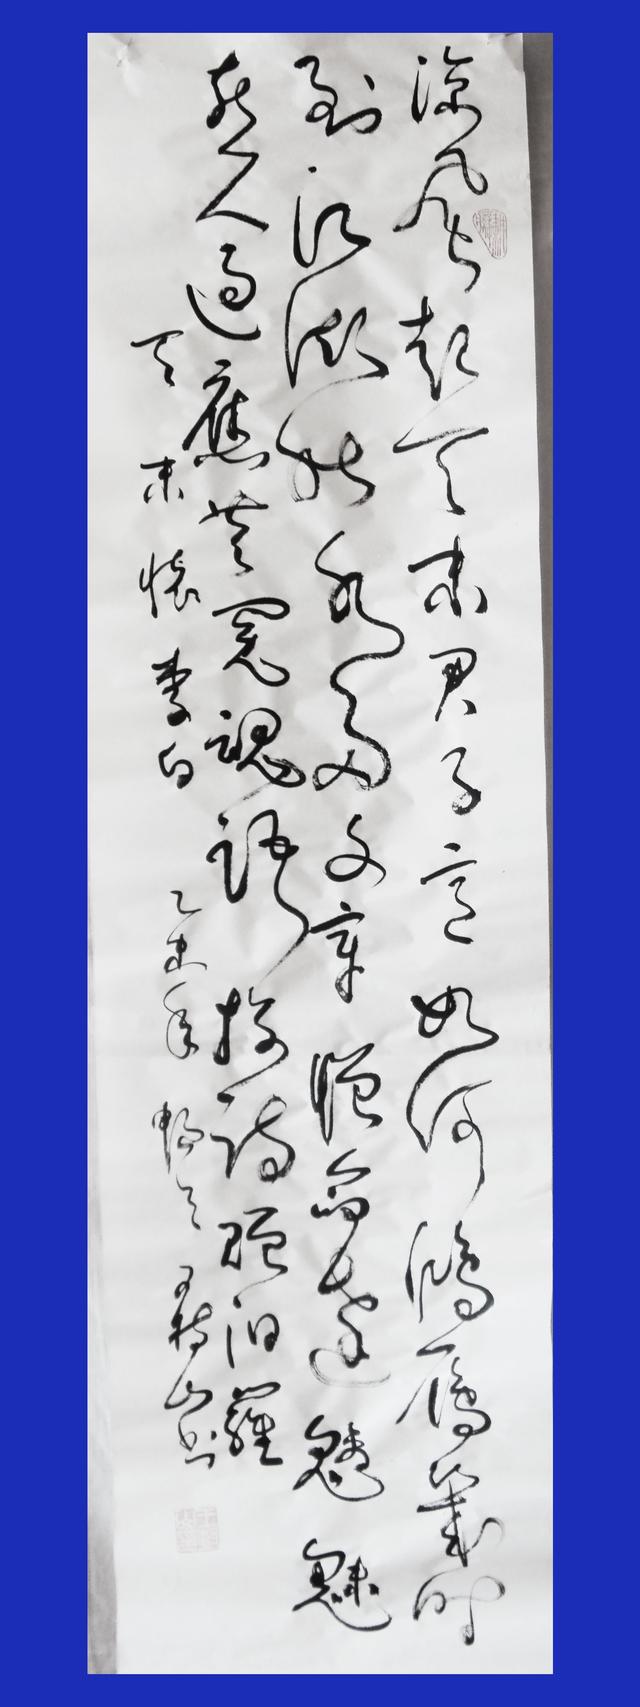 涼風起天末君子意如何鴻雁幾時
到江湖秋水多文章憎命達魑魅
喜人過應共冤魂語投詩贈汨羅
天末懷李白 乙未年 山书